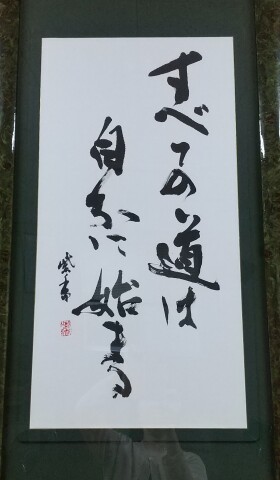 すべての道は
自分に始まる